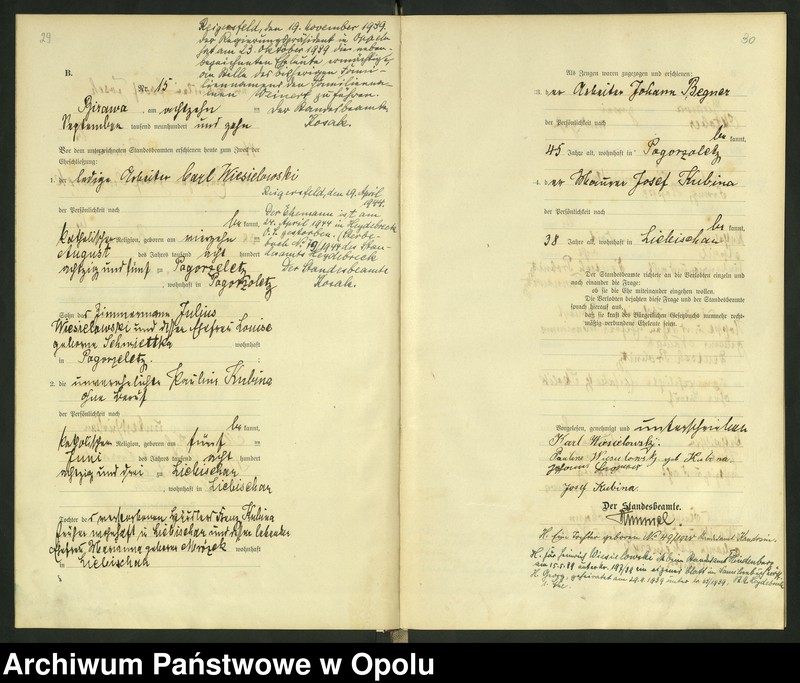 29
Reigersfeld, den 19. November 1939.
Der Regierungspräsident in Oppeln
hat am 23. Oktober 1939 die neben-
bezeichneten Eheleute ermächtigt
an Stelle des bisherigen Fami-
liennamens den Familienna-
men Weinert zu führen.
Der Standesbeamte
Kosak.
B.
Nr. 15
Birawa am achtzehn
September tausend neunhundert und zehn
Vor dem unterzeichneten Standesbeamten erschienen heute zum Zweck der
Eheschließung:
1. der ledige Arbeiter Carl Wiesielowski
Reigersfeld, den 29. April
1944.
Der Ehemann ist am
24. April 1944 in Heydebreck
O.S. gestorben. (Sterbe-
buch Nr. 19/1944 des Stan-
desamts Heydebreck
Der Standesbeamte
Kosak.
der Persönlichkeit nach
be kannt,
katholischer Religion, geboren am vierzehn
August des Jahres tausend acht hundert
achtzig und fünf zu Pogorzeletz
, wohnhaft in Pogorzeletz
Sohn des Zimmermann Julius
Wiesielowski und dessen Ehefrau Louise
geborne wohnhaft
in Pogorzeletz.
2. die unverehelichte Pauline Kubina
ohne Beruf
der Persönlichkeit nach
be kannt,
katholischer Religion, geboren am fünf
Juni des Jahres tausend acht hundert
achtzig und drei zu Liebischau
, wohnhaft in Liebischau
Tochter des verstorbenen Häuslers Franz Kubina
früher wohnhaft in Liebischau und dessen lebenden
Ehefrau Marianna geborne Mrozek wohnhaft
in Liebischau
30
Als Zeugen waren zugezogen und erschienen:
3. der Arbeiter Johann Begner
der Persönlichkeit nach
be kannt,
45 Jahre alt, wohnhaft in Pogorzeletz
4. der Maurer Josef Kubina
der Persönlichkeit nach
be kannt,
38 Jahre alt, wohnhaft in Liebischau
Der Standesbeamte richtete an die Verlobten einzeln und
nach einander die Frage:
ob sie die Ehe miteinander eingehen wollen.
Die Verlobten bejahten diese Frage und der Standesbeamte
sprach hierauf aus,
daß sie kraft des Bürgerlichen Gesetzbuchs nunmehr recht-
mäßig verbundene Eheleute seien.
Vorgelesen, genehmigt und unterschrieben
Karl Wiesielowski.
Pauline geb. Kubina.
Johann Begner
Josef Kubina
Der Standesbeamte.
Hummel.
H. Eine Tochter geboren Nr. Standesamt
H. für Heinrich Wiesielowski ist beim Standesamt Hindenburg
am 15.5.39 unter Nr. ein eigenes Blatt im Familienbuch
H. Georg, geheiratet am 29.8.1939 unter Nr.